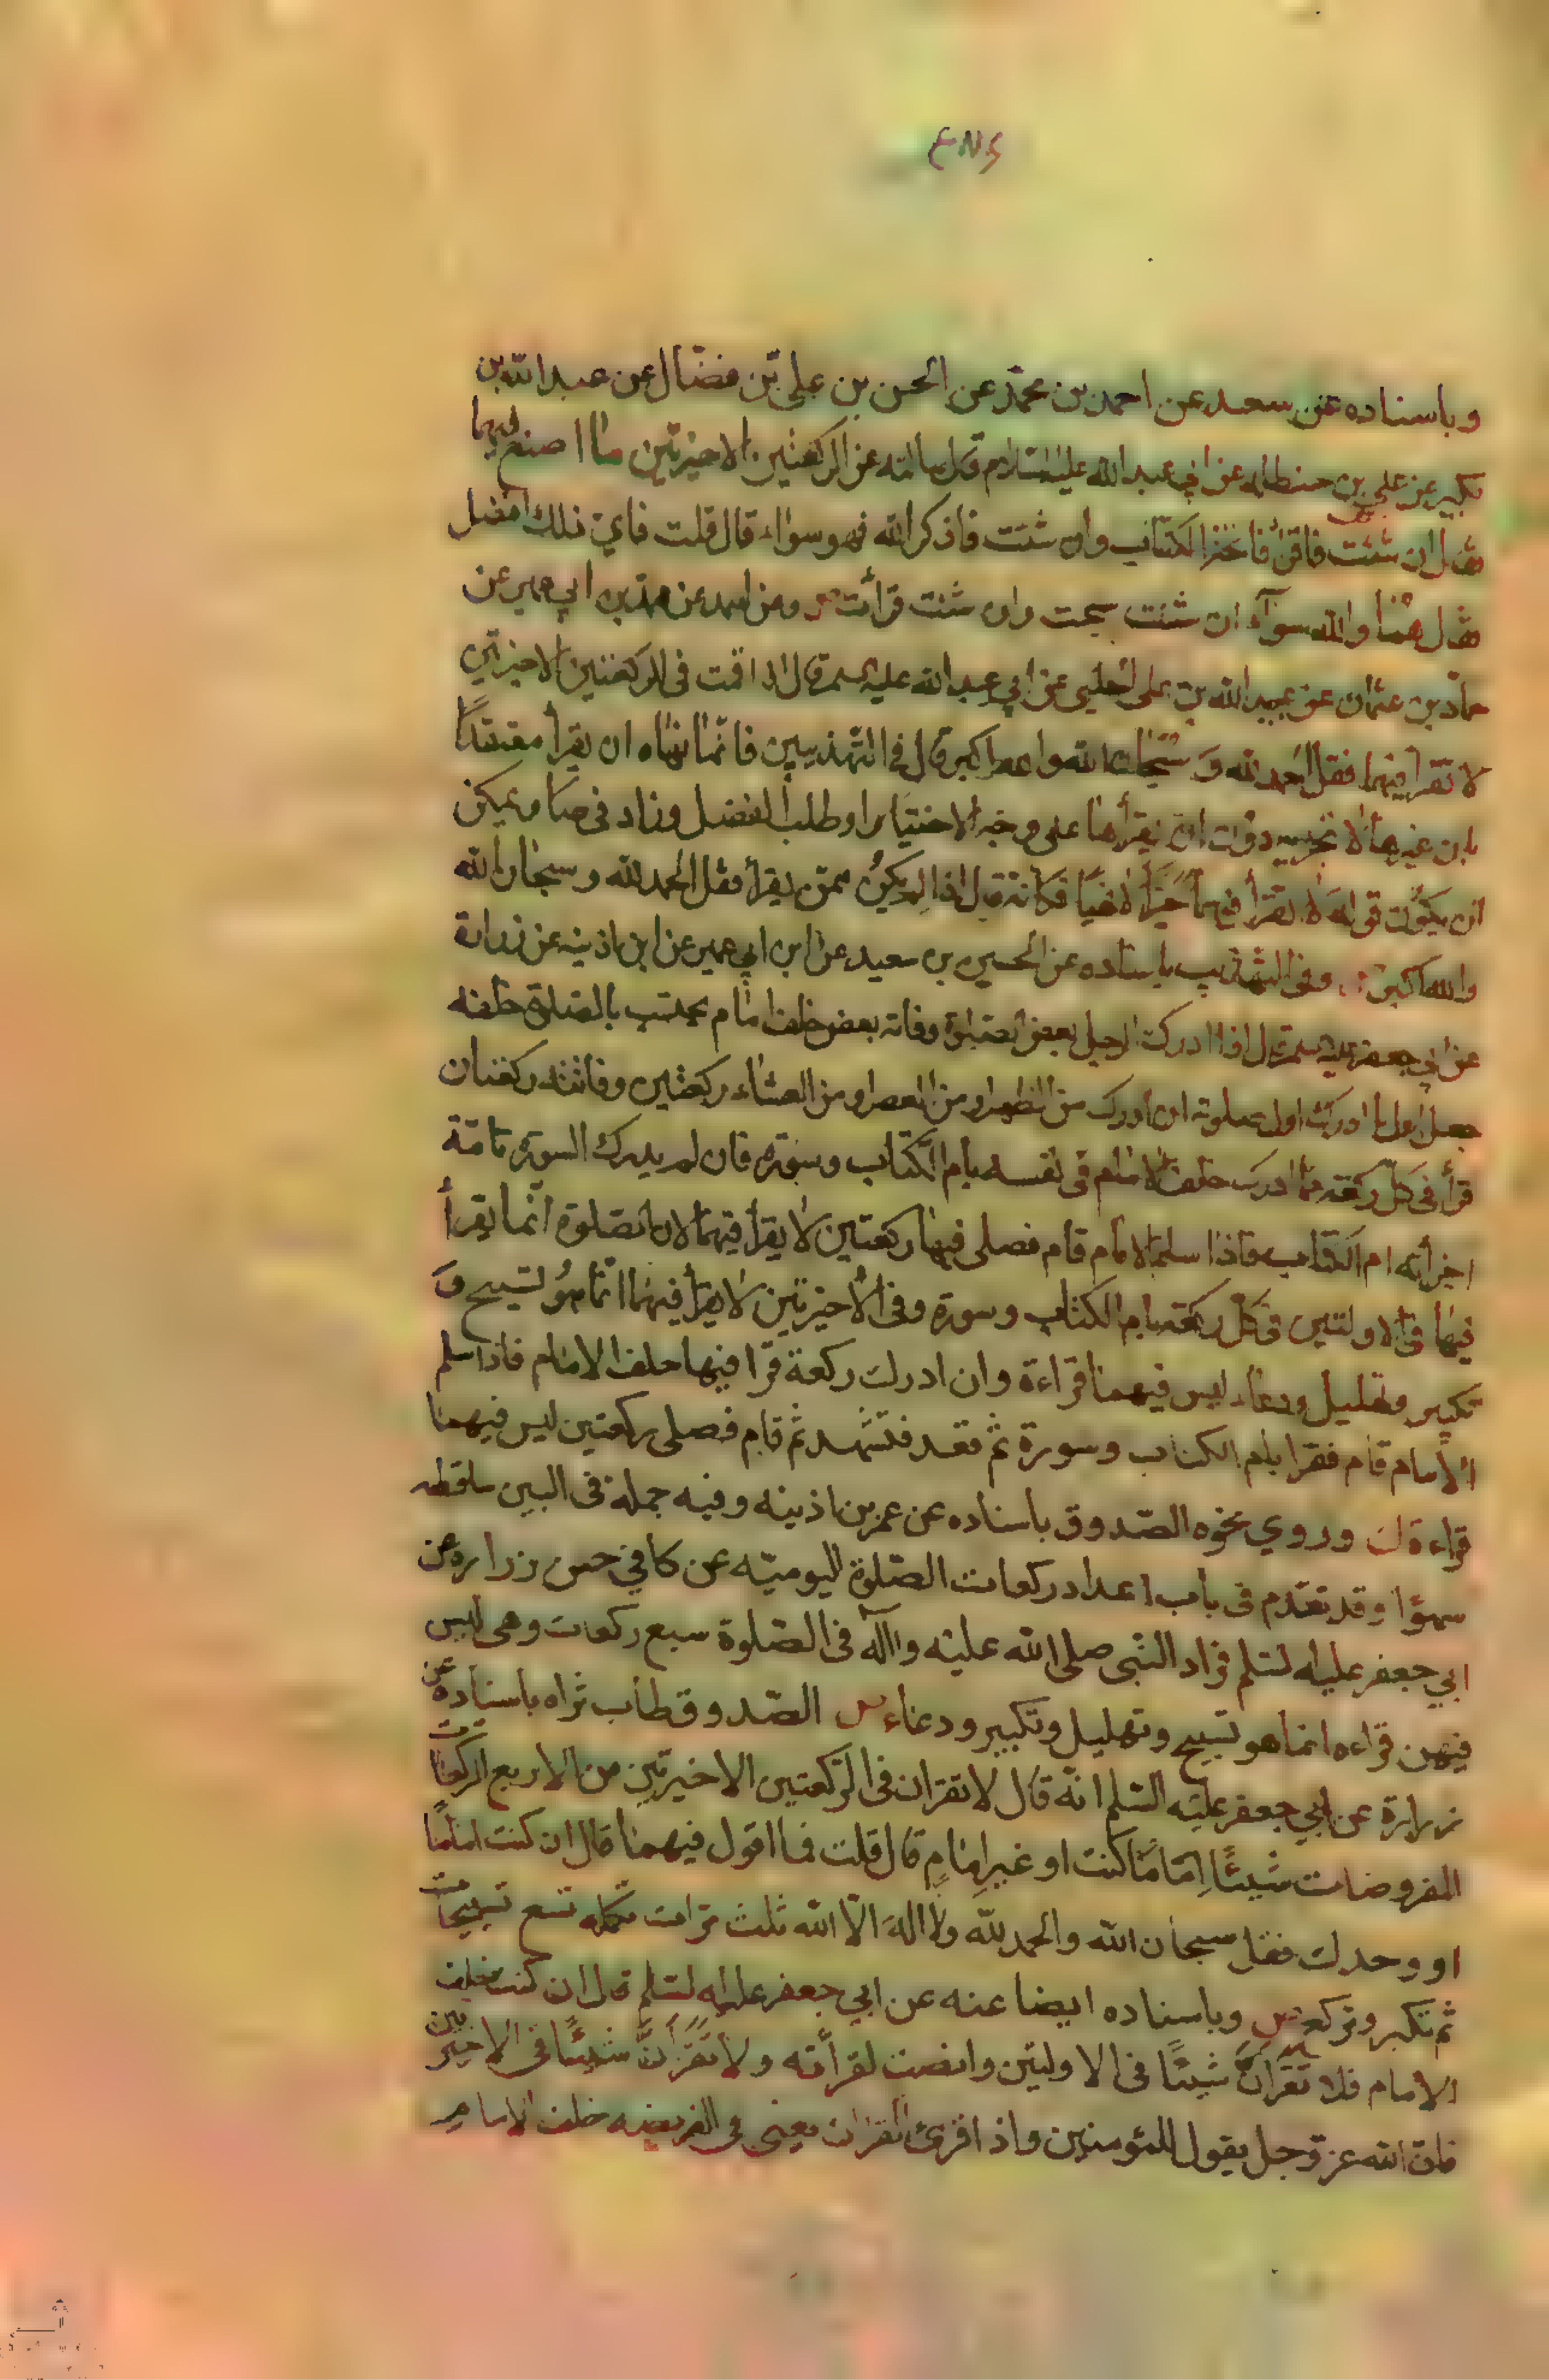 وباسناده عن سعد عن احمد بن محمد عن الحسن بن علي بن فضال عن عبد الله بن
بكير عن علي بن حنظله عن ابي عبد الله عليه السلام قال سالته عن الركعتين الاخيرتين ما اصنع فيهما
فقال ان شئت فاقرأ فاتحة الكتاب وان شئت فاذكر الله فهو سواء قال قلت فاي ذلك افضل
فقال هما والله سواء ان شئت سبحت وان شئت قرأت وعن احمد عن محمد بن ابي عمير عن
حماد بن عثمان عن عبيد الله بن علي الحلبي عن ابي عبد الله عليه السلم قال اذا قمت في الركعتين الاخيرتين
لا تقرا فيهما فقل الحمد لله وسبحان الله والله اكبر قال في التهذيبين فانما نهاه ان يقرأ معتقدًا
بان غيرها لا تجزيه دون ان يقرأها على وجه الاختيار او طلب الفضل وزاد في صا ويمكن
ان يكون قوله لا تقرأ فيهما خبرًا لا نهيًا فكانه قال اذا لم تكن ممن يقرأ فقل الحمد لله وسبحان الله
والله اكبر وفي التهذيب باسناده عن الحسين بن سعيد عن ابن ابي عمير عن ابن اذينه عن زرارة
عن ابي جعفر عليه السلم قال اذا ادرك الرجل بعض الصلوة وفاته بعض خلف امام يحتسب بالصلوة خلفه
جعل اول ما ادرك اول صلوته ان ادرك من الظهر او من العصر او من العشاء ركعتين وفاتته ركعتان
قرأ في كل ركعة مما ادرك خلف الامام في نفسه بام الكتاب وسورة فان لم يدرك السورة تامة
اجزأته ام الكتاب فاذا سلم الامام قام فصلى فيها ركعتين لا يقرأ فيهما لان الصلوة انما يقرأ
فيها في الاولتين في كل ركعة بام الكتاب وسورة وفي الأخيرتين لا يقرأ فيهما انما هو تسبيح و
تكبير وتهليل ودعاء ليس فيهما قراءة وان ادرك ركعة قرا فيها خلف الامام فاذا سلم
الامام قام فقرا بام الكتاب وسورة ثم قعد فتشهد ثم قام فصلى ركعتين ليس فيهما
قراءة وروي نحوه الصدوق باسناده عن عمر بن اذينه وفيه جملة في البين ساقطه
سهوًا وقد تقدم في باب اعداد ركعات الصلوة اليوميه عن كا في حسن زراره عن
ابي جعفر عليه السلم فزاد النبي صلى الله عليه واله في الصلوة سبع ركعات وهي ليس
فيهن قراءه انما هو تسبيح وتهليل وتكبير ودعاء الصدوق طاب ثراه باسناده عن
زرارة عن ابي جعفر عليه السلم انه قال لا تقران في الركعتين الاخيرتين من الاربع الركعات
المفروضات شيئًا اِمَامًا كنت او غير اِمامٍ قال قلت فما اقول فيهما قال ان كنت امامًا
او وحدك فقل سبحان الله والحمد لله ولا اله الا الله ثلث مرات تكمله تسع تسبيحات
ثم تكبر وتركع وباسناده ايضا عنه عن ابي جعفر عليه السلم قال ان كنت خلف
الامام فلا تقرأن شيئًا في الاولتين وانصت لقرأته ولا تقرأن شيئًا في الاخيرتين
فان الله عز وجل يقول للمؤمنين واذا قرئ القران يعني في الفريضه خلف الامام